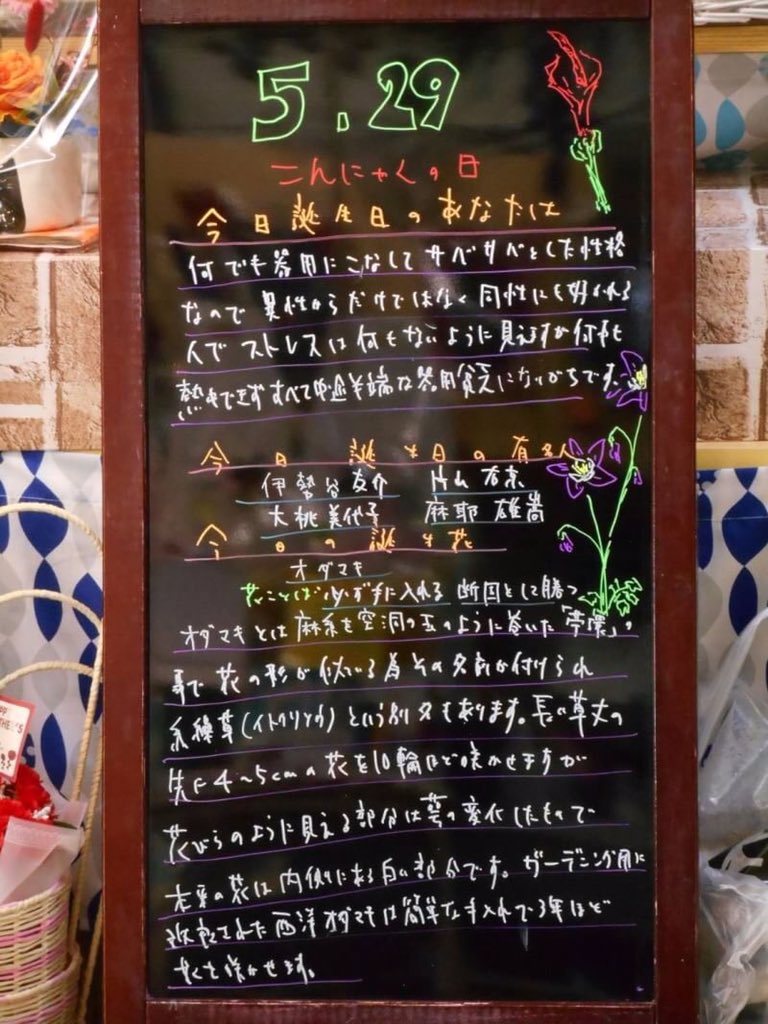 5.29
こんにゃくの日
今日誕生日のあなたは
何でも器用にこなしてサバサバとした性格
なので異性からだけではなく同性にも好かれる
人でストレスは何もないように見えますが何事も
熱中できずすべて中途半端な器用貧乏になりがちです。
今日誕生日の有名人
伊勢谷友介 片山右京
大桃美代子 麻耶雄嵩
今日の誕生花
オダマキ
花ことば 必ず手に入れる 断固として勝つ
オダマキとは麻糸を空洞の玉のように巻いた「苧環」の
事で花の形が似ている為その名前が付けられ
糸繰草(イトクリソウ)という別名もあります。長い草丈の
先に4~5cmの花を10輪ほど咲かせますが
花びらのように見える部分は萼の変化したもので
本来の花は内側にある白い部分です。ガーデニング用に
改良された西洋オダマキは簡単な手入れで3年ほど
咲かせます。